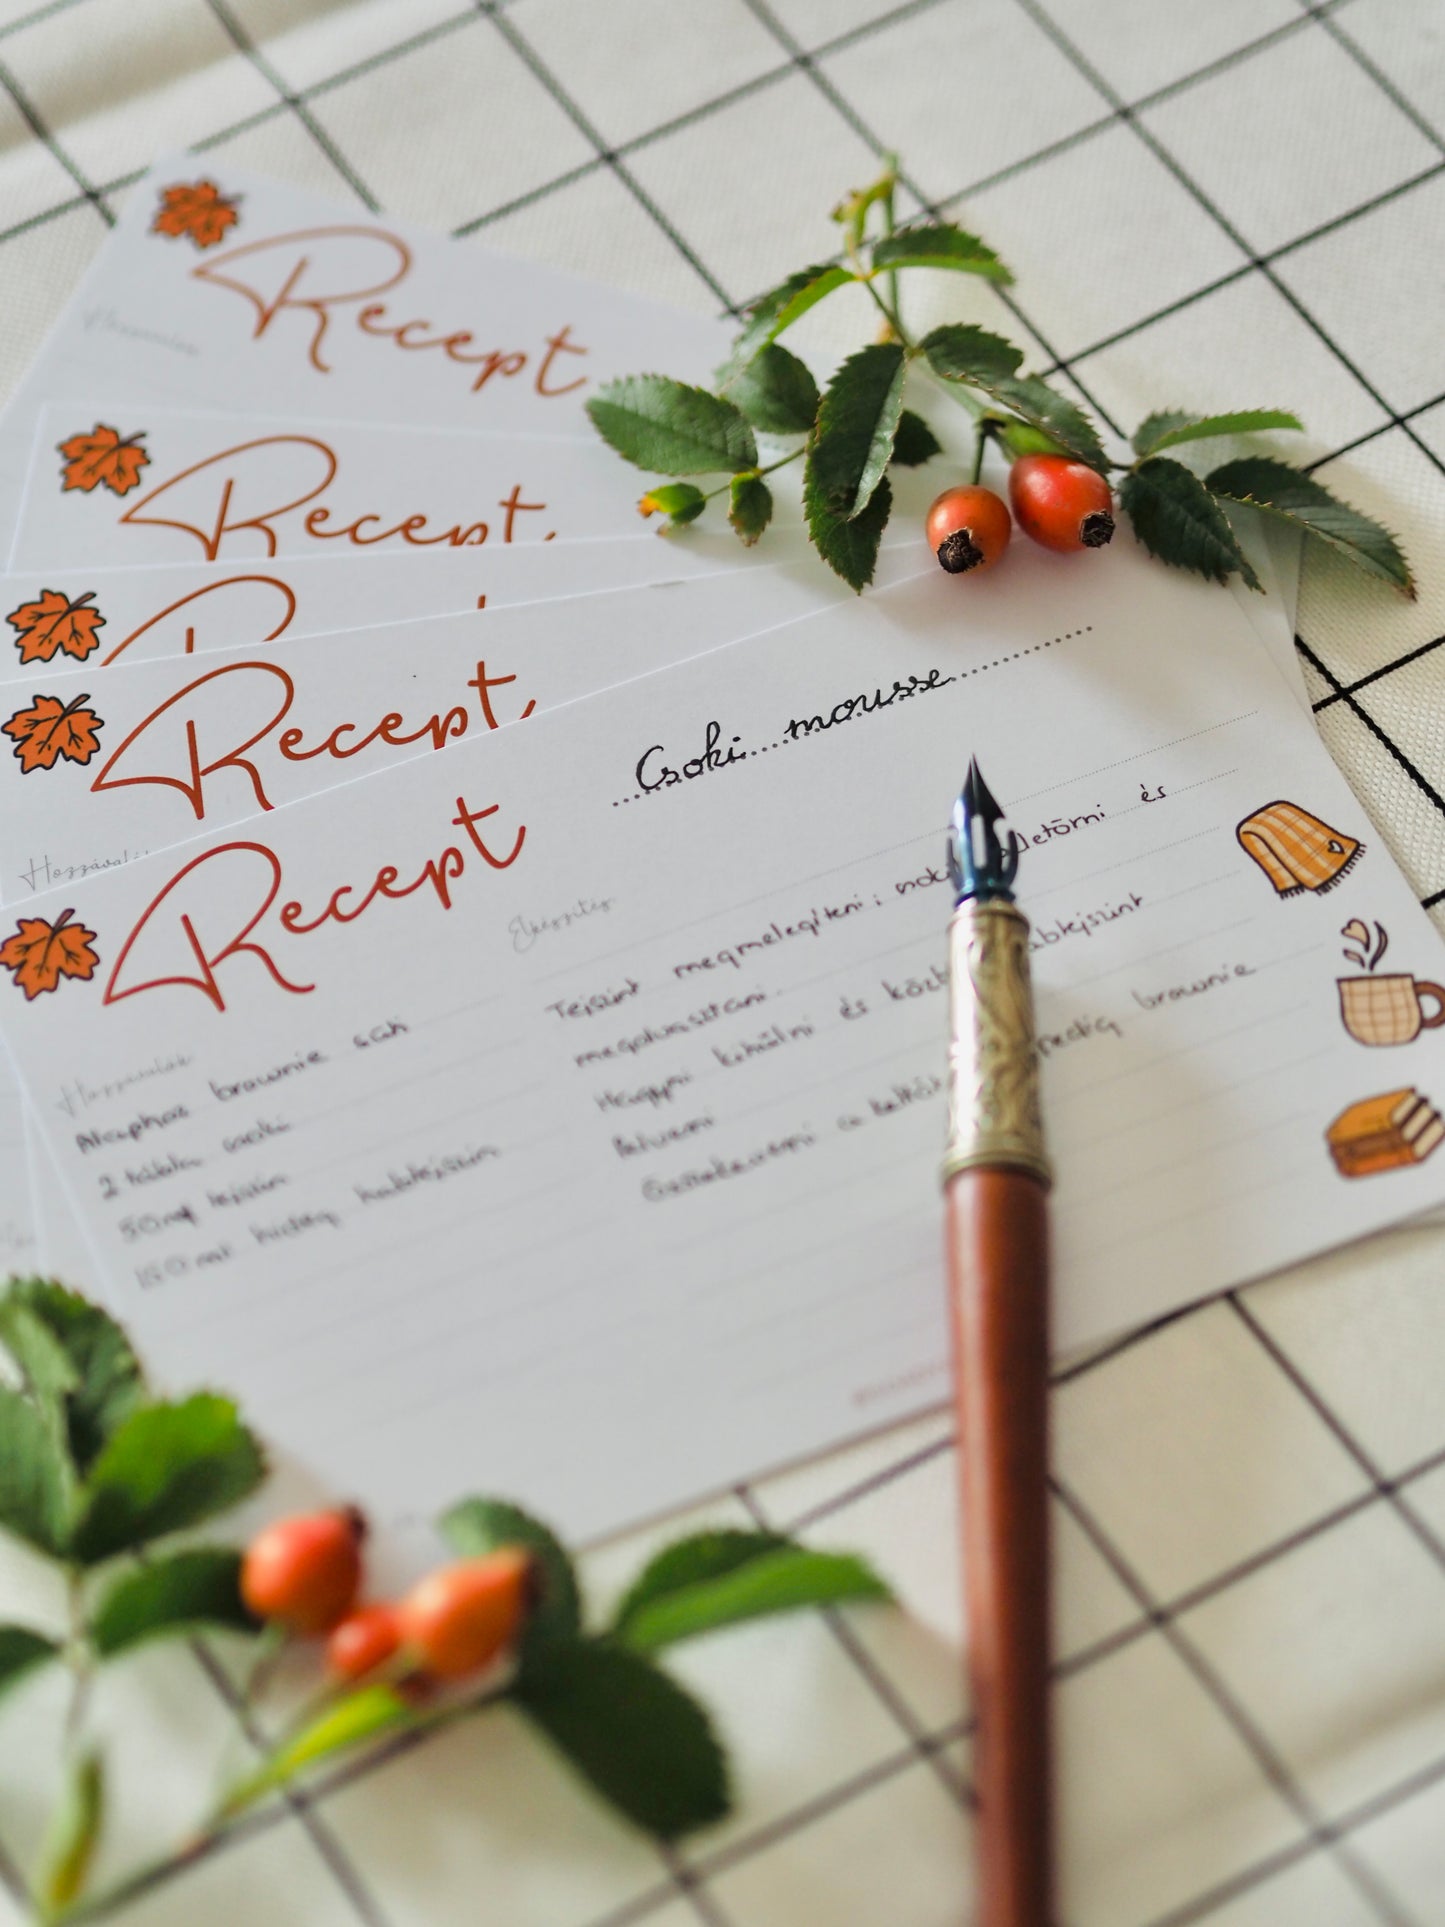 Recept
Recept
Recept
Hozzávalók
Recept
Csoki mousse
Hozzávalók
Elkészítés
Alaphoz brownie süti
2 tábla csoki
50 ml tejszín
150 ml hideg habtejszín
Tejszínt megmelegíteni; csoki letörni és
megolvasztani.
Hagyni kihűlni és közb abtejszínt
felverni
Összekeverni a kettőt pedig brownie